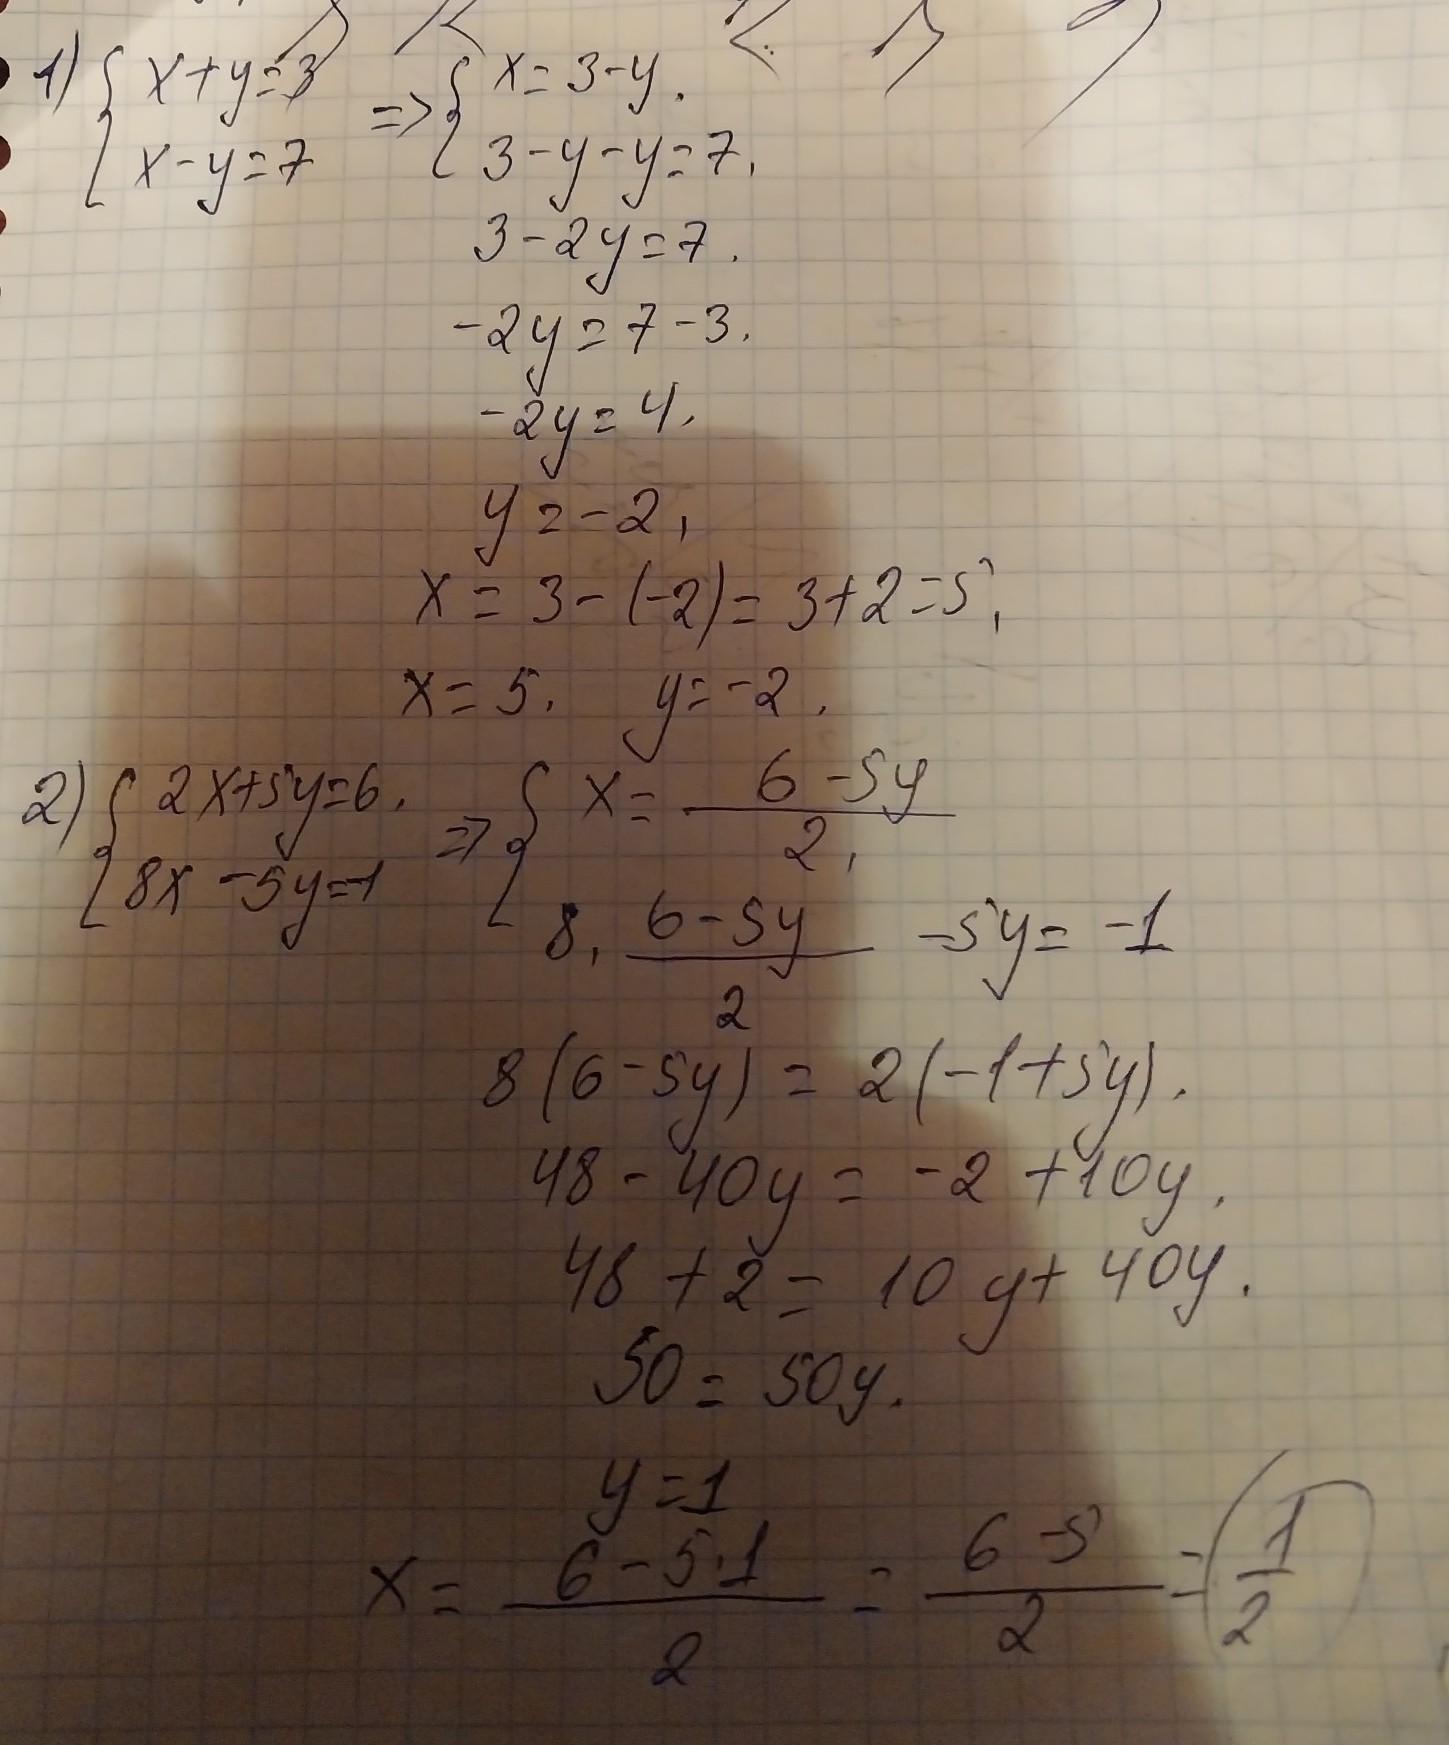 1) { x+y=3 => { x=3-y.
x-y=7 3-y-y=7.
3-2y=7.
-2y=7-3.
-2y=4.
y=-2,
x=3-(-2)=3+2=5,
x=5. y=-2.
2) { 2x+5y=6. => { x= (6-5y)/2,
8x-5y=-1 8· (6-5y)/2 -5y=-1
8(6-5y)=2(-1+5y).
48-40y=-2+10y.
48+2=10y+40y.
50=50y.
y=1
x= (6-5·1)/2 = (6-5)/2 = 1/2